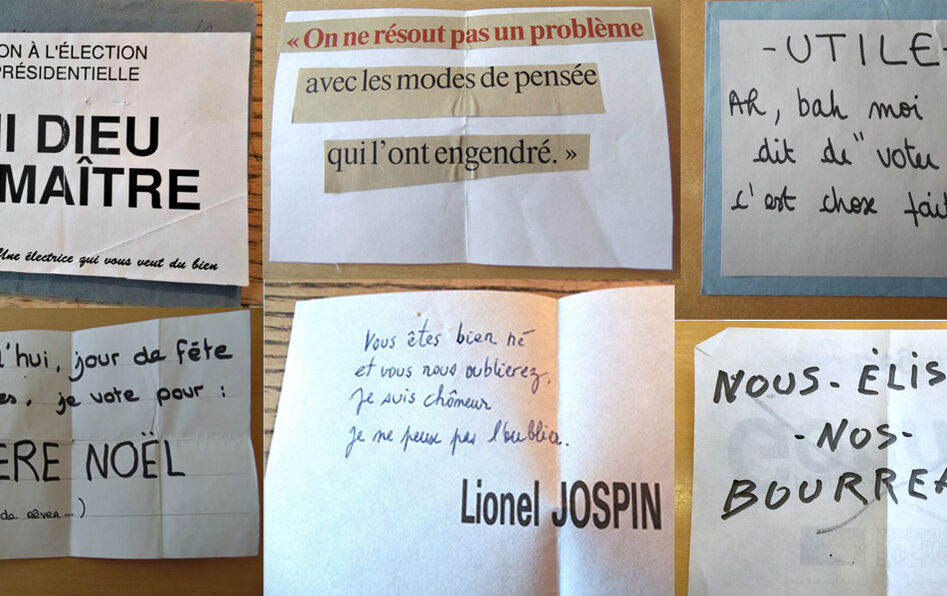 ON À L'ÉLECTION
PRÉSIDENTIELLE
NI DIEU
MAÎTRE
Une électrice qui vous veut du bien
« On ne résout pas un problème
avec les modes de pensée
qui l'ont engendré. »
-UTILE
Ah, bah moi
dit de "voter
c'est chose fait
l'hui, jour de fête
es, je vote pour :
ERE NOËL
de rêver...)
Vous êtes bien né
et vous nous oublierez,
Je suis chômeur
je ne peux pas l'oublier.
Lionel JOSPIN
NOUS-ÉLIS
-NOS-
BOURREA